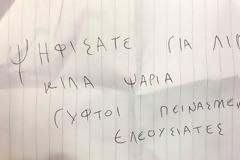 ΨΗΦΙΣΑΤΕ ΓΙΑ ΛΙΓ
ΚΙΛΑ ΨΑΡΙΑ
ΓΥΦΤΟΙ ΠΕΙΝΑΣΜΕΝ
ΕΛΕΟΥΣΙΑΤΕΣ